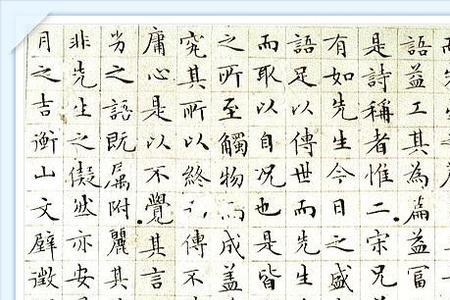 語益工其為篇益富
是詩稱者惟二宋兄
有如先生今日之盛
語足以傳世而先生
而取以自况也是皆
之所至觸物而成蓋
究其所以終傳不
庸心是以不覺其言
劣之語既属附麗其
非先生之儗然亦安
月之吉衡山文璧徵